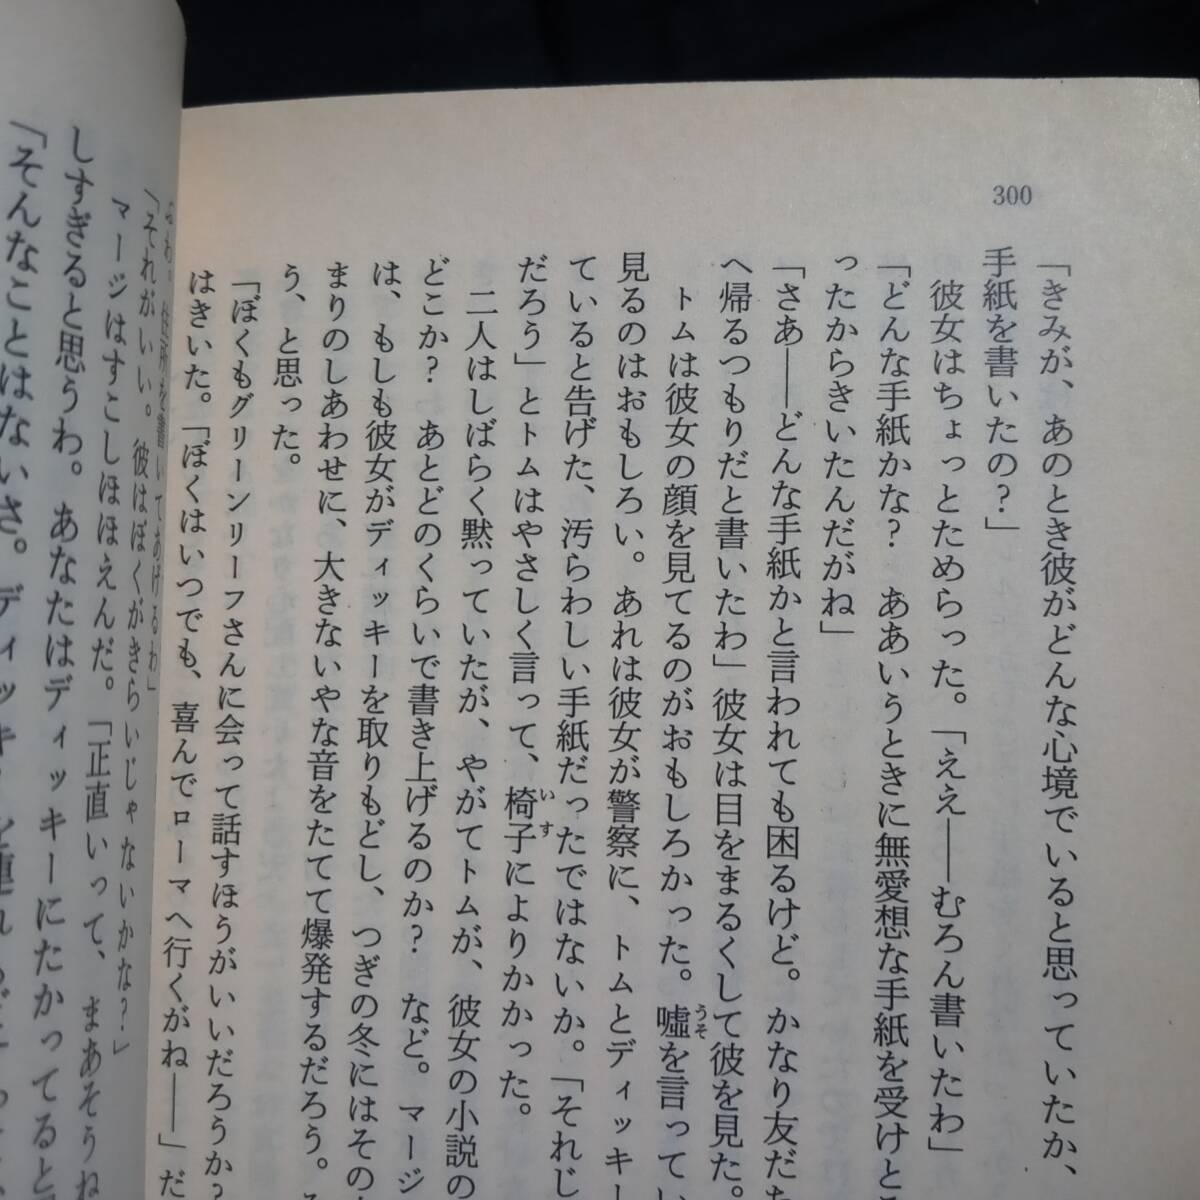 300
「きみが、あのとき彼がどんな心境でいると思っていたか、
手紙を書いたの?」
彼女はちょっとためらった。「ええ――むろん書いたわ」
「どんな手紙かな? ああいうときに無愛想な手紙を受けと
ったからきいたんだがね」
「さあ――どんな手紙かと言われても困るけど。かなり友だち
へ帰るつもりだと書いたわ」彼女は目をまるくして彼を見た。
トムは彼女の顔を見てるのがおもしろかった。嘘を言ってい
うそ
見るのはおもしろい。あれは彼女が警察に、トムとディッキー
ていると告げた、汚らわしい手紙だったではないか。「それじ
だろう」とトムはやさしく言って、椅子によりかかった。
いす
二人はしばらく黙っていたが、やがてトムが、彼女の小説の
どこか? あとどのくらいで書き上げるのか? など。マージ
は、もしも彼女がディッキーを取りもどし、つぎの冬にはその
まりのしあわせに、大きないやな音をたてて爆発するだろう。
う、と思った。
「ぼくもグリーンリーフさんに会って話すほうがいいだろうか?
はきいた。「ぼくはいつでも、喜んでローマへ行くがね――」だ
住所を書いてあげるわ」
「それがいい。彼はぼくがきらいじゃないかな?」
マージはすこしほほえんだ。「正直いって、まあそうね
しすぎると思うわ。あなたはディッキーにたかってると
「そんなことはないさ。ディッキーを連れ